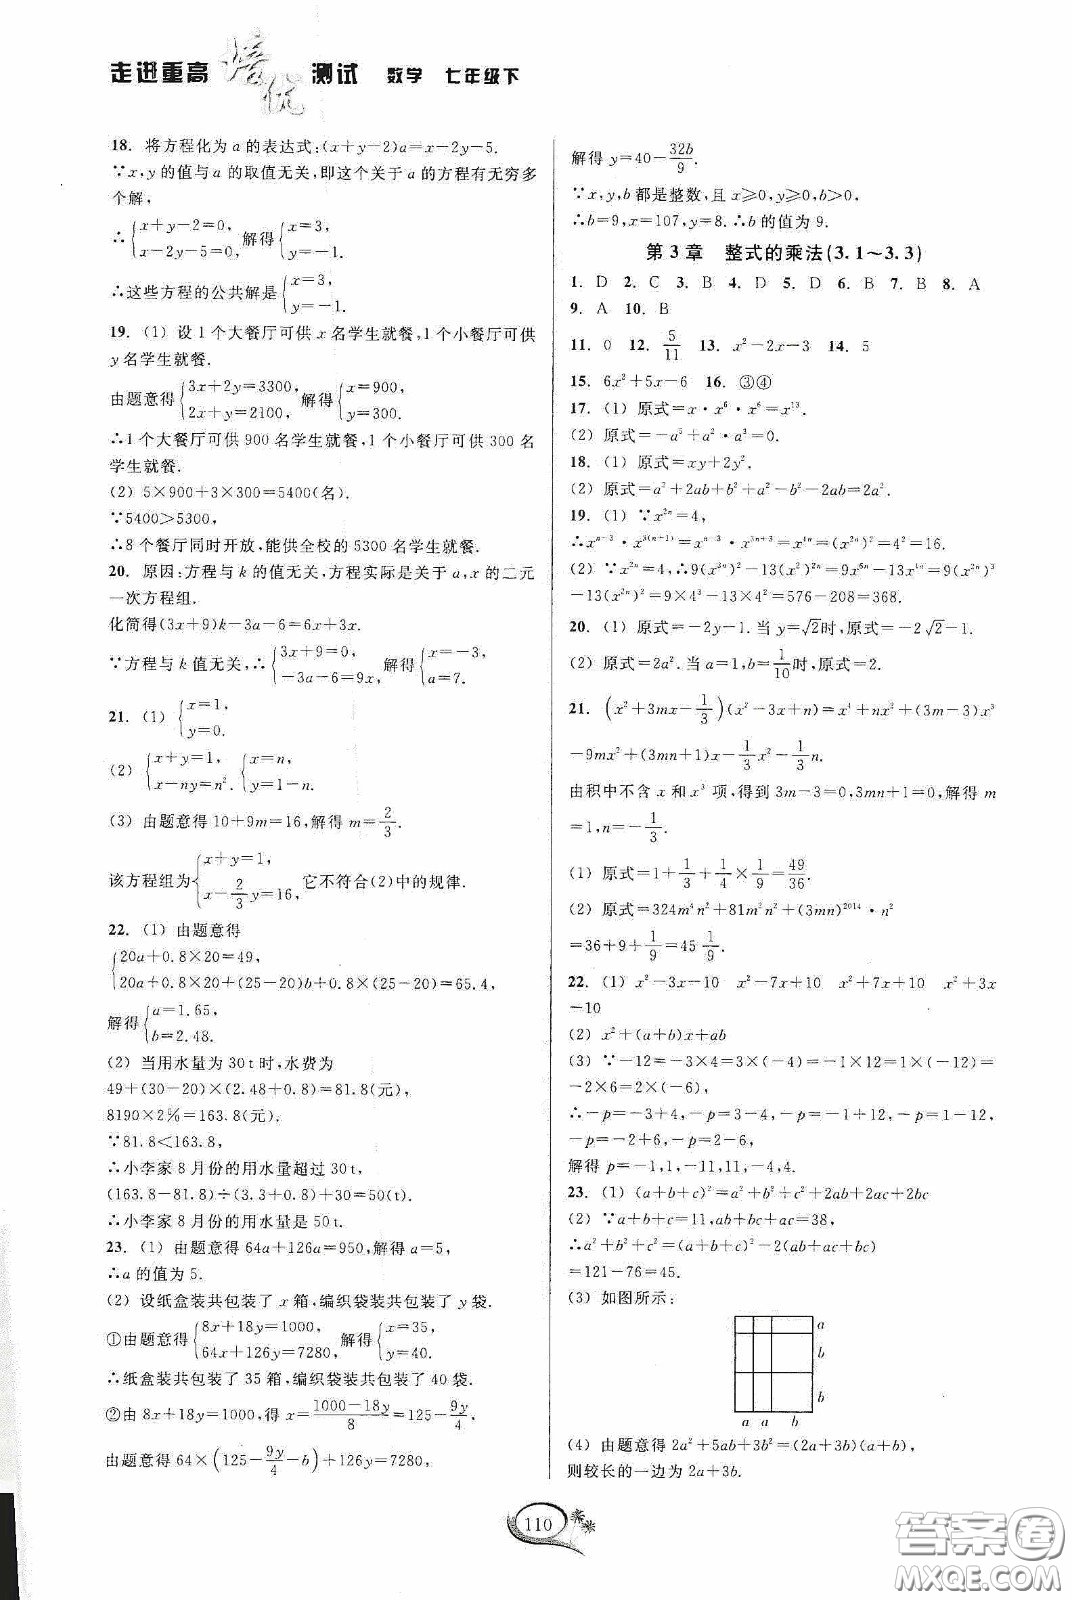 走进重高 培优 测试 数学 七年级下
18. 将方程化为 a 的表达式:(x+y-2)a=x-2y-5.
∵x,y 的值与 a 的取值无关,即这个关于 a 的方程有无穷多
个解,
∴{x+y-2=0, x-2y-5=0, 解得{x=3, y=-1.
∴这些方程的公共解是{x=3, y=-1.
19. (1) 设 1 个大餐厅可供 x 名学生就餐,1 个小餐厅可供
y 名学生就餐.
由题意得{3x+2y=3300, 2x+y=2100, 解得{x=900, y=300.
∴1 个大餐厅可供 900 名学生就餐,1 个小餐厅可供 300 名
学生就餐.
(2) 5×900+3×300=5400(名).
∵5400>5300,
∴8 个餐厅同时开放,能供全校的 5300 名学生就餐.
20. 原因:方程与 k 的值无关,方程实际是关于 a,x 的二元
一次方程组.
化简得(3x+9)k-3a-6=6x+3x.
∵方程与 k 值无关,∴{3x+9=0, -3a-6=9x, 解得{x=-3, a=7.
21. (1) {x=1, y=0.
(2) {x+y=1, x-ny=n². {x=n, y=1-n.
(3) 由题意得 10+9m=16,解得 m=2/3.
该方程组为{x+y=1, x-2/3y=16, 它不符合(2)中的规律.
22. (1) 由题意得
{20a+0.8×20=49,
20a+0.8×20+(25-20)b+0.8×(25-20)=65.4,
解得{a=1.65, b=2.48.
(2) 当用水量为 30 t 时,水费为
49+(30-20)×(2.48+0.8)=81.8(元),
8190×2%=163.8(元).
∵81.8<163.8,
∴小李家 8 月份的用水量超过 30 t,
(163.8-81.8)÷(3.3+0.8)+30=50(t).
∴小李家 8 月份的用水量是 50 t.
23. (1) 由题意得 64a+126a=950,解得 a=5,
∴a 的值为 5.
(2) 设纸盒装共包装了 x 箱,编织袋装共包装了 y 袋.
①由题意得{8x+18y=1000, 64x+126y=7280, 解得{x=35, y=40.
∴纸盒装共包装了 35 箱,编织袋装共包装了 40 袋.
②由 8x+18y=1000,得 x=(1000-18y)/8=125-9y/4,
由题意得 64×(125-9y/4-b)+126y=7280,
解得 y=40-32b/9.
∵x,y,b 都是整数,且 x≥0,y≥0,b>0,
∴b=9,x=107,y=8.∴b 的值为 9.
第 3 章 整式的乘法(3.1~3.3)
1. D 2. C 3. B 4. D 5. D 6. B 7. B 8. A
9. A 10. B
11. 0 12. 5/11 13. x²-2x-3 14. 5
15. 6x²+5x-6 16. ③④
17. (1) 原式=x·x⁶·x⁶=x¹³.
(2) 原式=-a⁵+a²·a³=0.
18. (1) 原式=xy+2y².
(2) 原式=a²+2ab+b²+a²-b²-2ab=2a².
19. (1) ∵x²ⁿ=4,
∴xⁿ⁻³·x³⁽ⁿ⁺¹⁾=xⁿ⁻³·x³ⁿ⁺³=x⁴ⁿ=(x²ⁿ)²=4²=16.
(2) ∵x²ⁿ=4,∴9(x³ⁿ)²-13(x²)²ⁿ=9x⁶ⁿ-13x⁴ⁿ=9(x²ⁿ)³
-13(x²ⁿ)²=9×4³-13×4²=576-208=368.
20. (1) 原式=-2y-1.当 y=√2时,原式=-2√2-1.
(2) 原式=2a².当 a=1,b=1/10时,原式=2.
21. (x²+3mx-1/3)(x²-3x+n)=x⁴+nx²+(3m-3)x³
-9mx²+(3mn+1)x-1/3x²-1/3n.
由积中不含 x 和 x³ 项,得到 3m-3=0,3mn+1=0,解得 m
=1,n=-1/3.
(1) 原式=1+1/3+1/4×1/9=49/36.
(2) 原式=324m⁴n²+81m²n²+(3mn)²⁰¹⁴·n²
=36+9+1/9=45 1/9.
22. (1) x²-3x-10 x²-7x+10 x²+7x+10 x²+3x
-10
(2) x²+(a+b)x+ab
(3) ∵-12=-3×4=3×(-4)=-1×12=1×(-12)=
-2×6=2×(-6),
∴-p=-3+4,-p=3-4,-p=-1+12,-p=1-12,
-p=-2+6,-p=2-6,
解得 p=-1,1,-11,11,-4,4.
23. (1) (a+b+c)²=a²+b²+c²+2ab+2ac+2bc
(2) ∵a+b+c=11,ab+bc+ac=38,
∴a²+b²+c²=(a+b+c)²-2(ab+ac+bc)
=121-76=45.
(3) 如图所示:
a
b
b
a a b
(4) 由题意得 2a²+5ab+3b²=(2a+3b)(a+b),
则较长的一边为 2a+3b.
110
答案卷
MXQE.COM